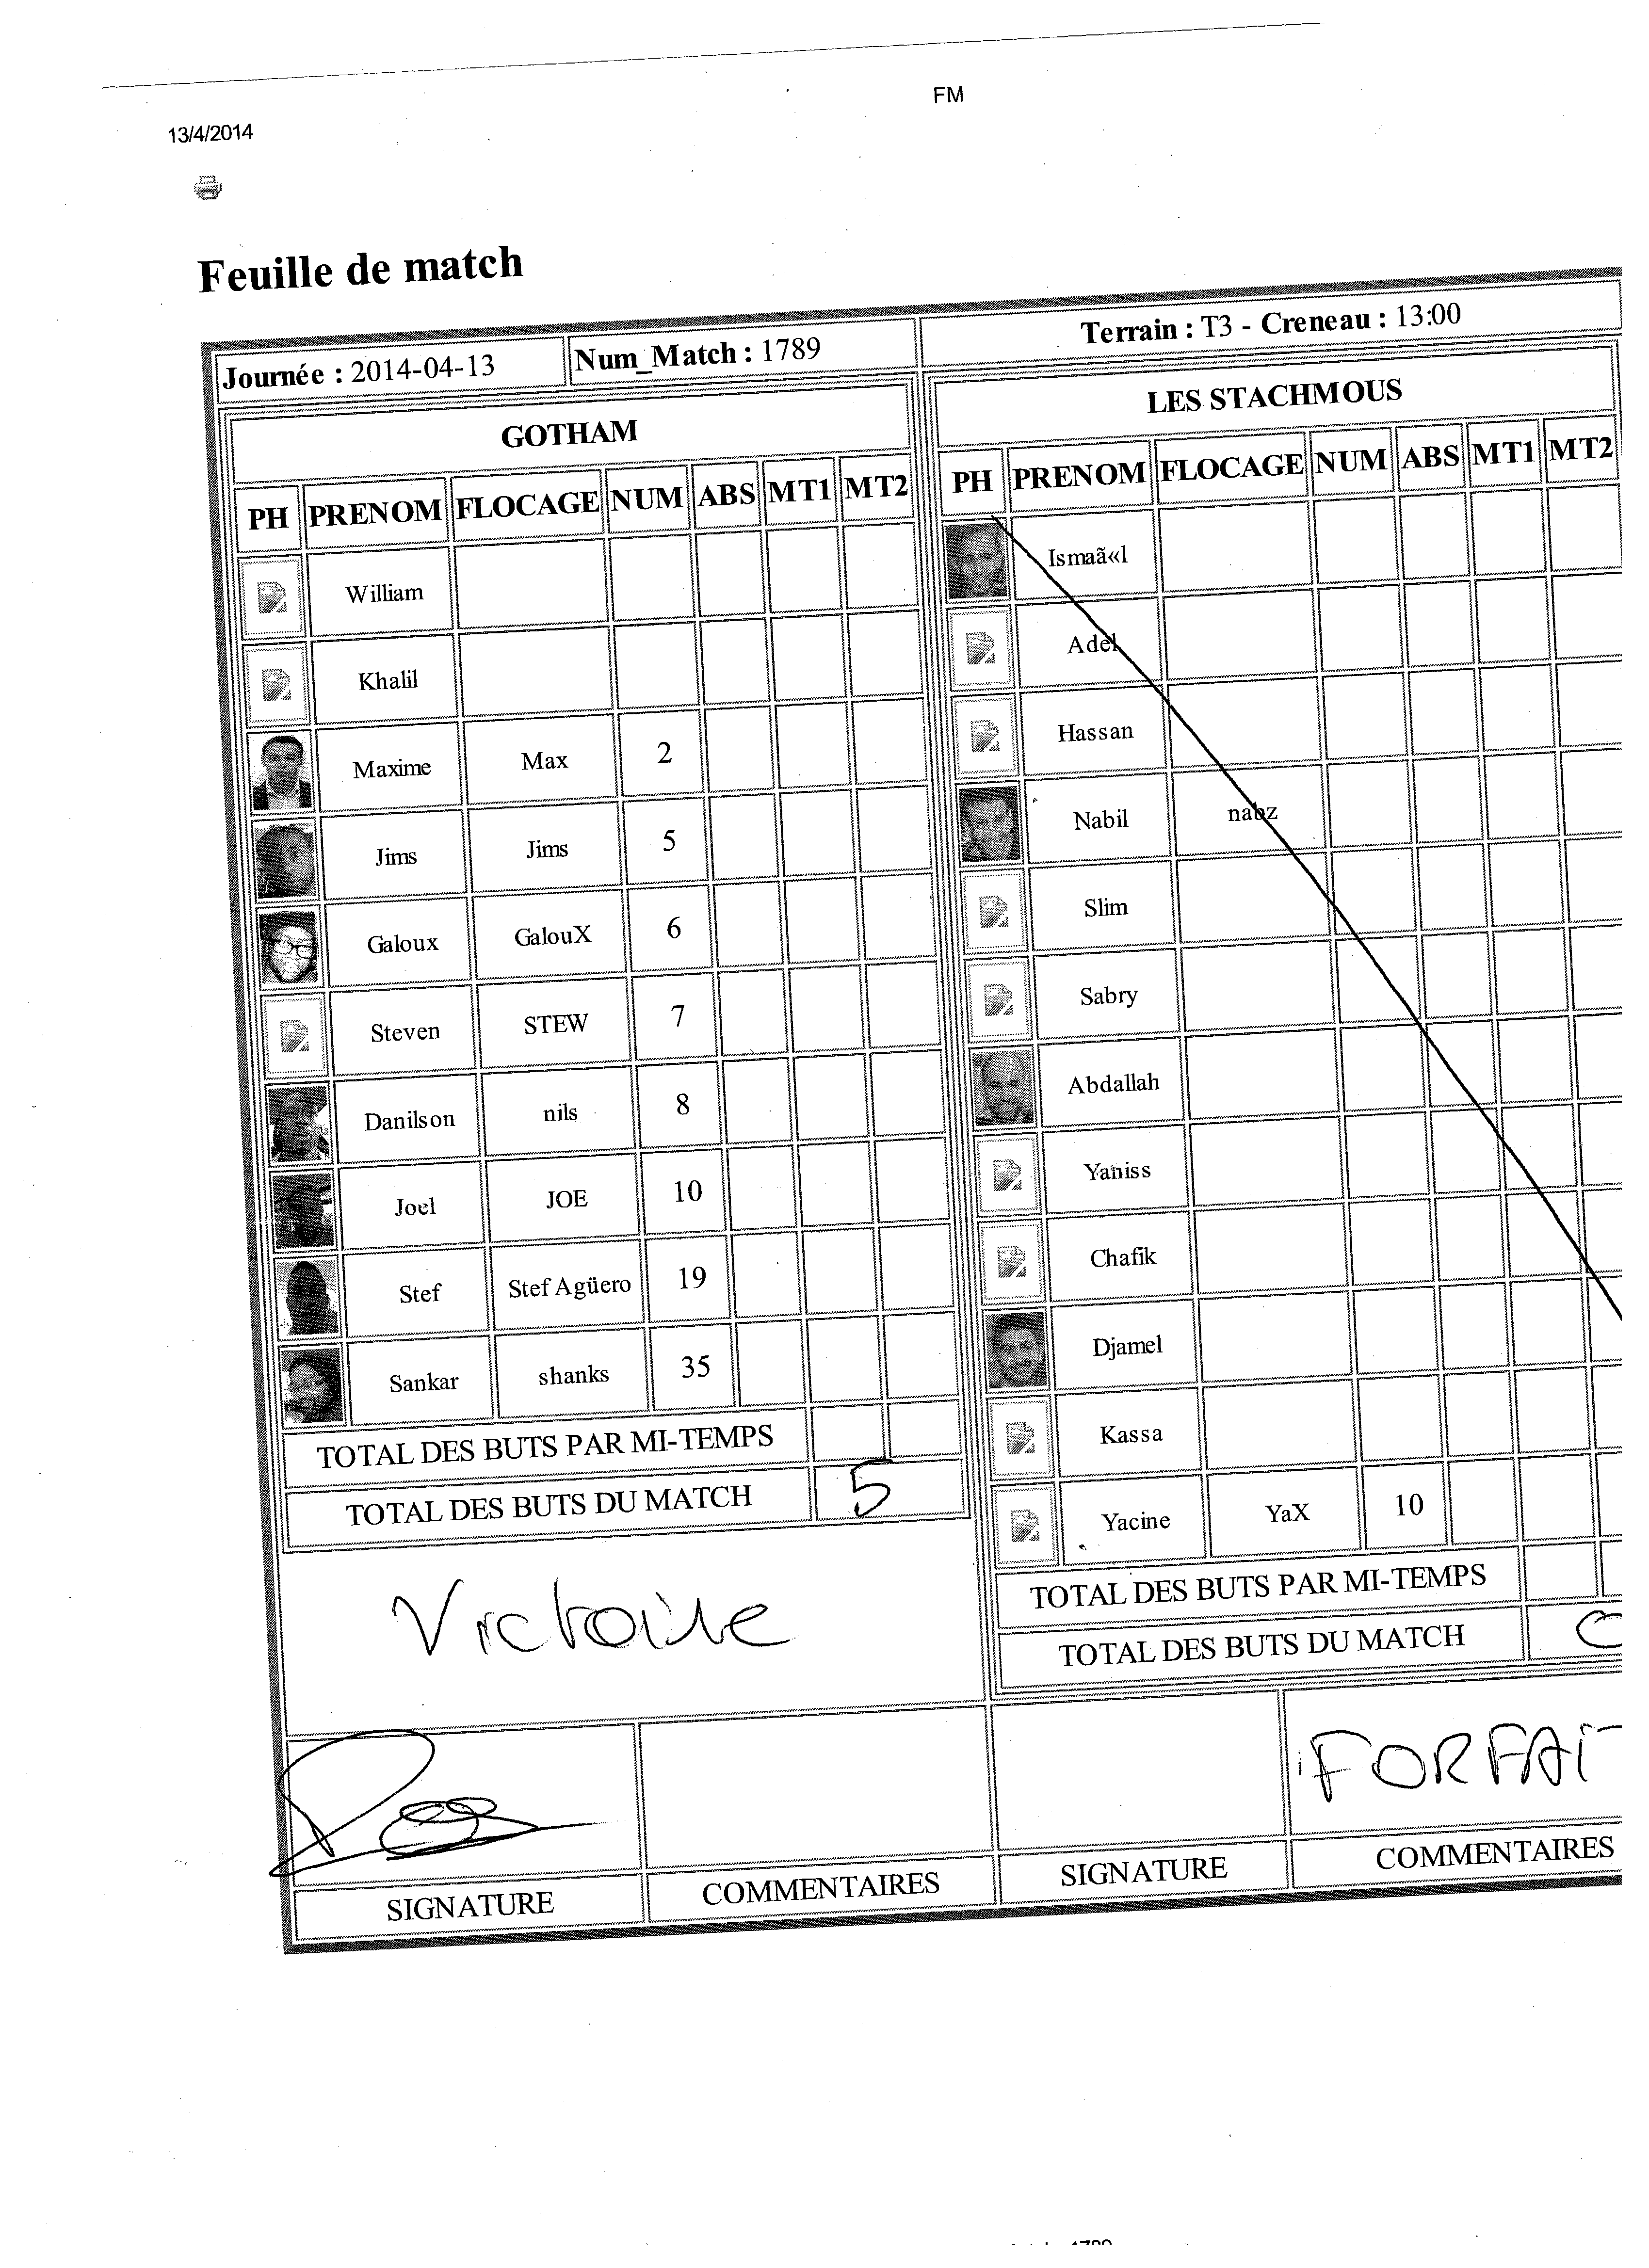 FM
13/4/2014
Feuille de match
Journée : 2014-04-13 Num_Match : 1789 Terrain : T3 - Creneau : 13:00
GOTHAM
PH PRENOM FLOCAGE NUM ABS MT1 MT2
William
Khalil
Maxime Max 2
Jims Jims 5
Galoux GalouX 6
Steven STEW 7
Danilson nils 8
Joel JOE 10
Stef Stef Agüero 19
Sankar shanks 35
TOTAL DES BUTS PAR MI-TEMPS
TOTAL DES BUTS DU MATCH 5
Victoire
SIGNATURE COMMENTAIRES
LES STACHMOUS
PH PRENOM FLOCAGE NUM ABS MT1 MT2
Ismaã«l
Adel
Hassan
Nabil nabz
Slim
Sabry
Abdallah
Yaniss
Chafik
Djamel
Kassa
Yacine YaX 10
TOTAL DES BUTS PAR MI-TEMPS
TOTAL DES BUTS DU MATCH 0
FORFAIT
SIGNATURE COMMENTAIRES